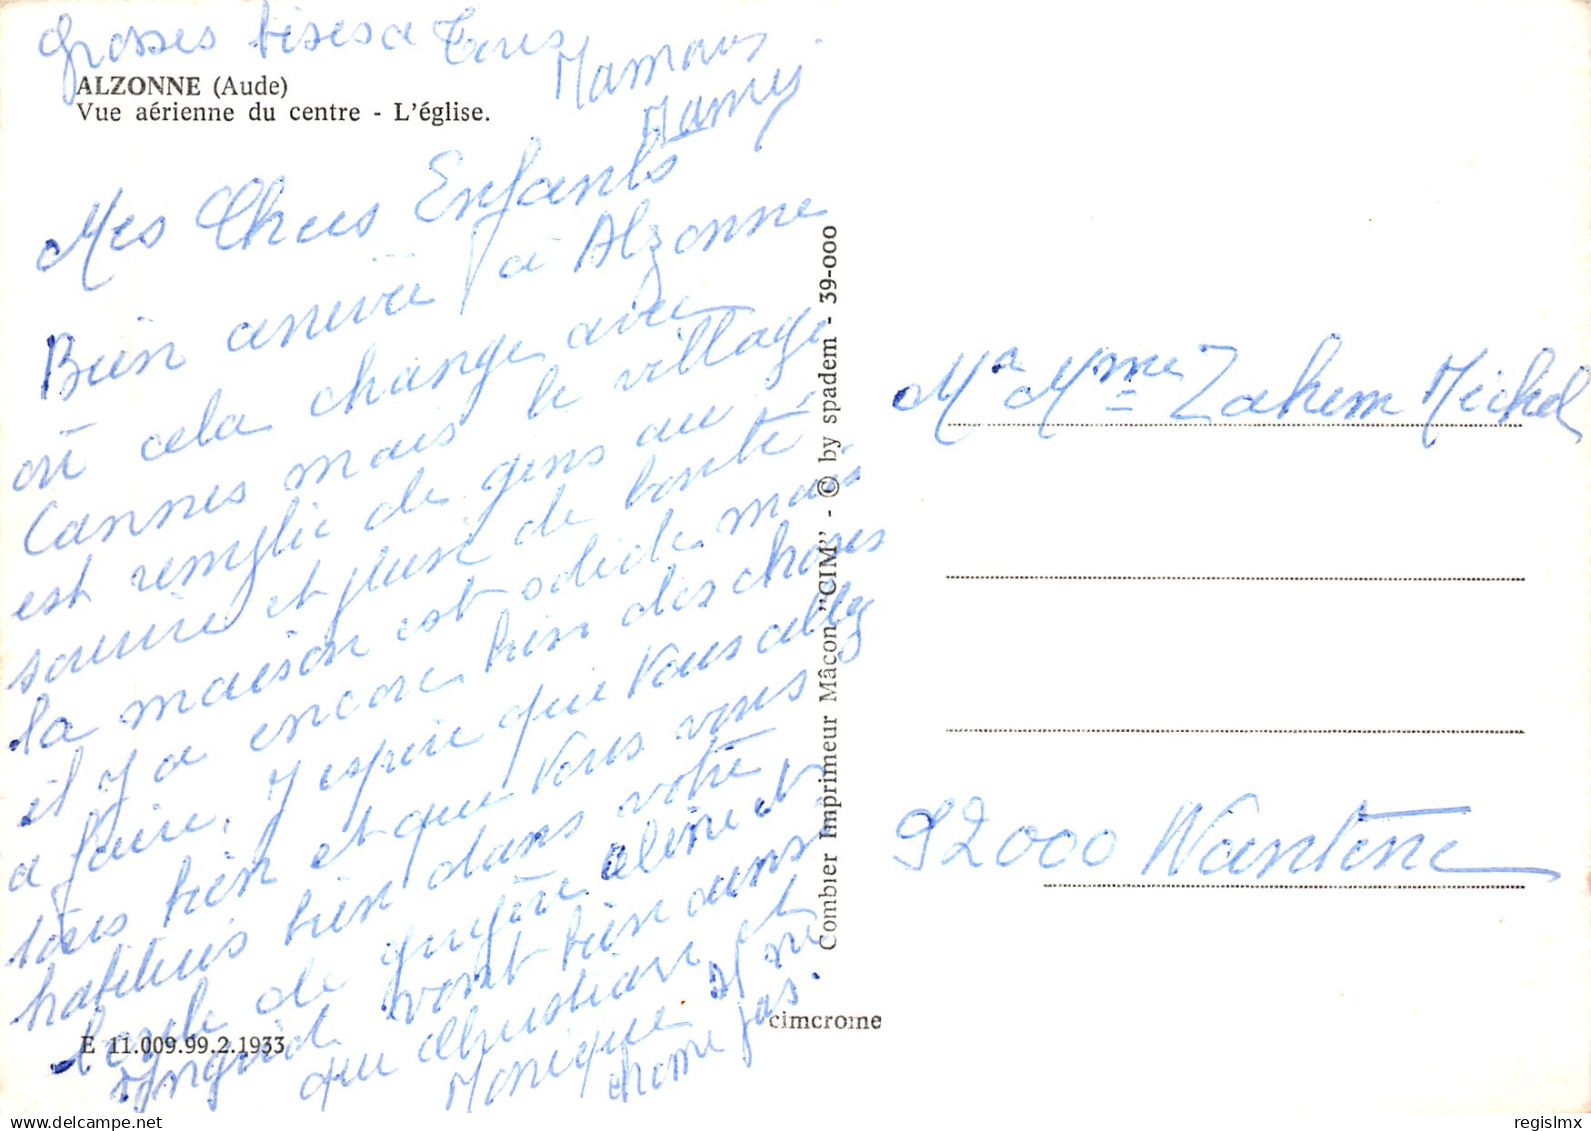 Grosses bises a Tous
Mamous
Mamy
ALZONNE (Aude)
Vue aérienne du centre - L'église.
Mes Chers Enfants
Bien arrivé à Alzonne
où cela change avec
Cannes mais le village
est remplie de gens au
sourire et pleine de bonté
la maison est solide mais
il y a encore bien des choses
a faire. J espère que vous allez
tous bien et que vous vous
habitués bien dans votre
de que et
Ingrid vont bien ainsi
que Christian et
Monique Il ne
chome pas.
E 11.009.99.2.1933
Combier Imprimeur Mâcon "CIM" - © by spadem - 39-000
cimcrome
Mr Mme Zahem Michel
92000 Nanterre
regislmx
delcampe.net